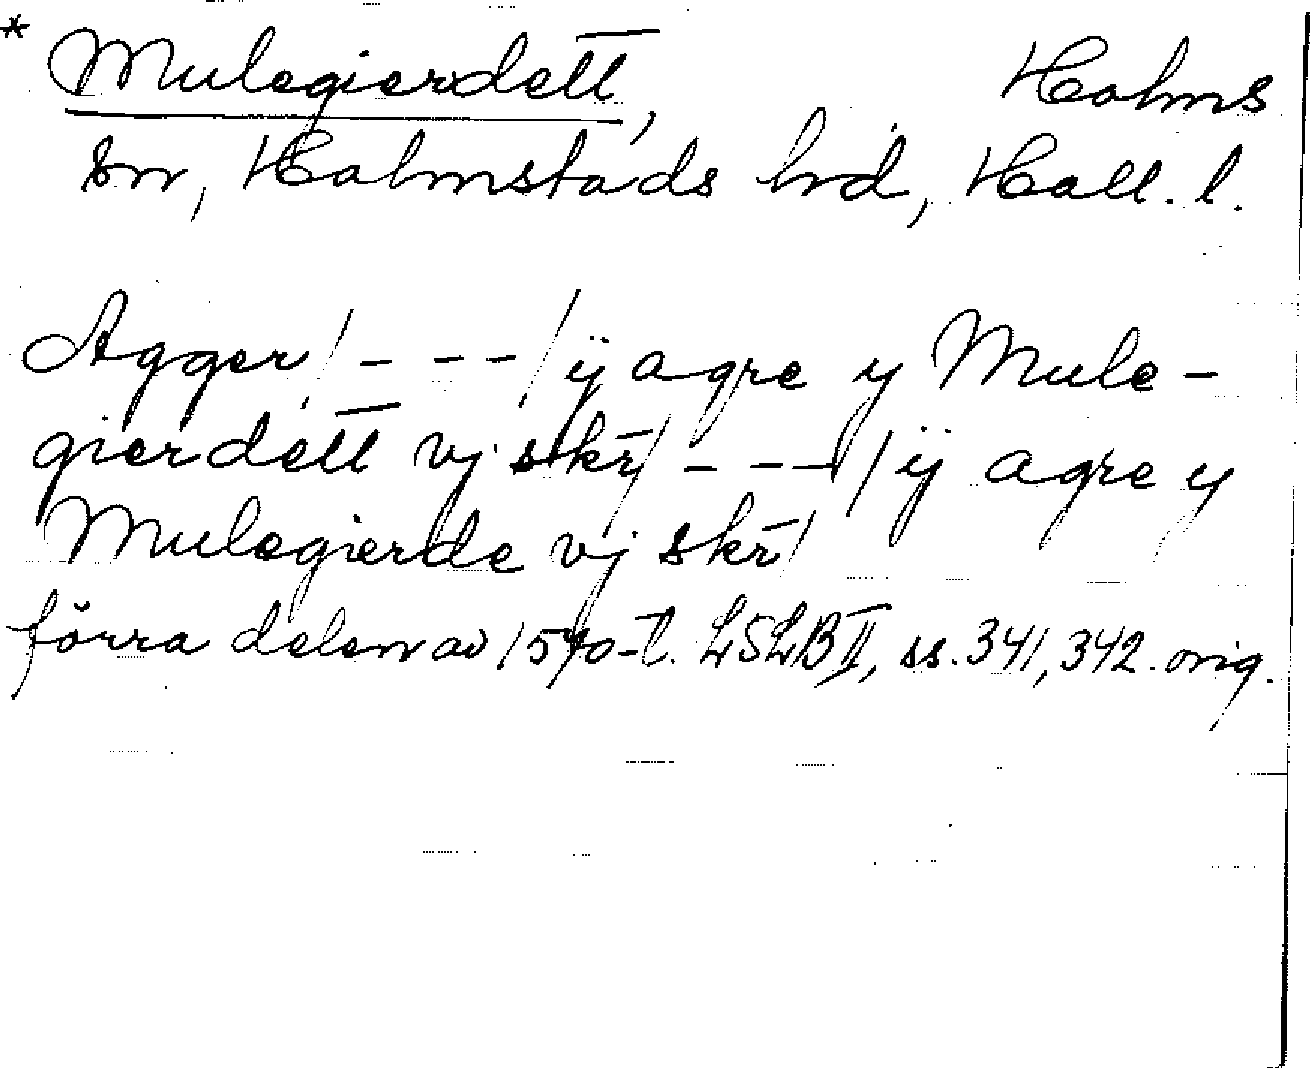 * Mulegierdett, Holms
sn, Halmstads hrd, Hall. l.
Agger /- - -/ ij agre y Mule-
gierdett vj skr̄ /- - -/ ij agre y
Mulegierde vj skr̄/
förra delen av 1570-t. LSLB II, ss. 341, 342. orig.